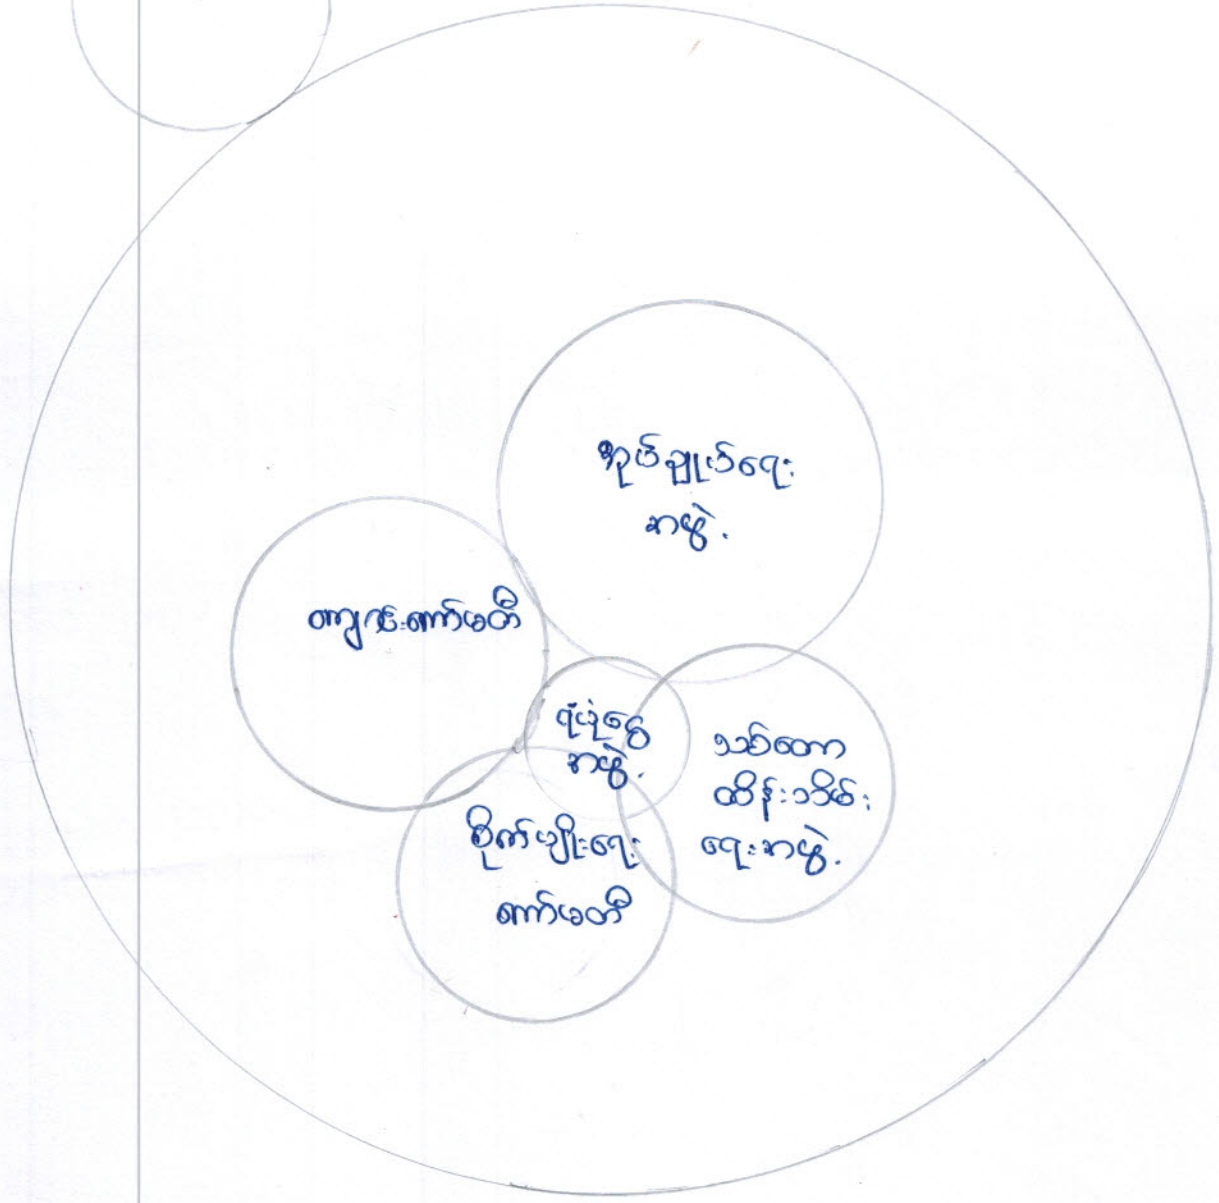 အုပ်ချုပ်ရေး
အဖွဲ့.
ကျောင်းကော်မတီ
ရံပုံငွေ
အဖွဲ့.
သစ်တော
ထိန်းသိမ်း
ရေးအဖွဲ့.
စိုက်ပျိုးရေး
ကော်မတီ